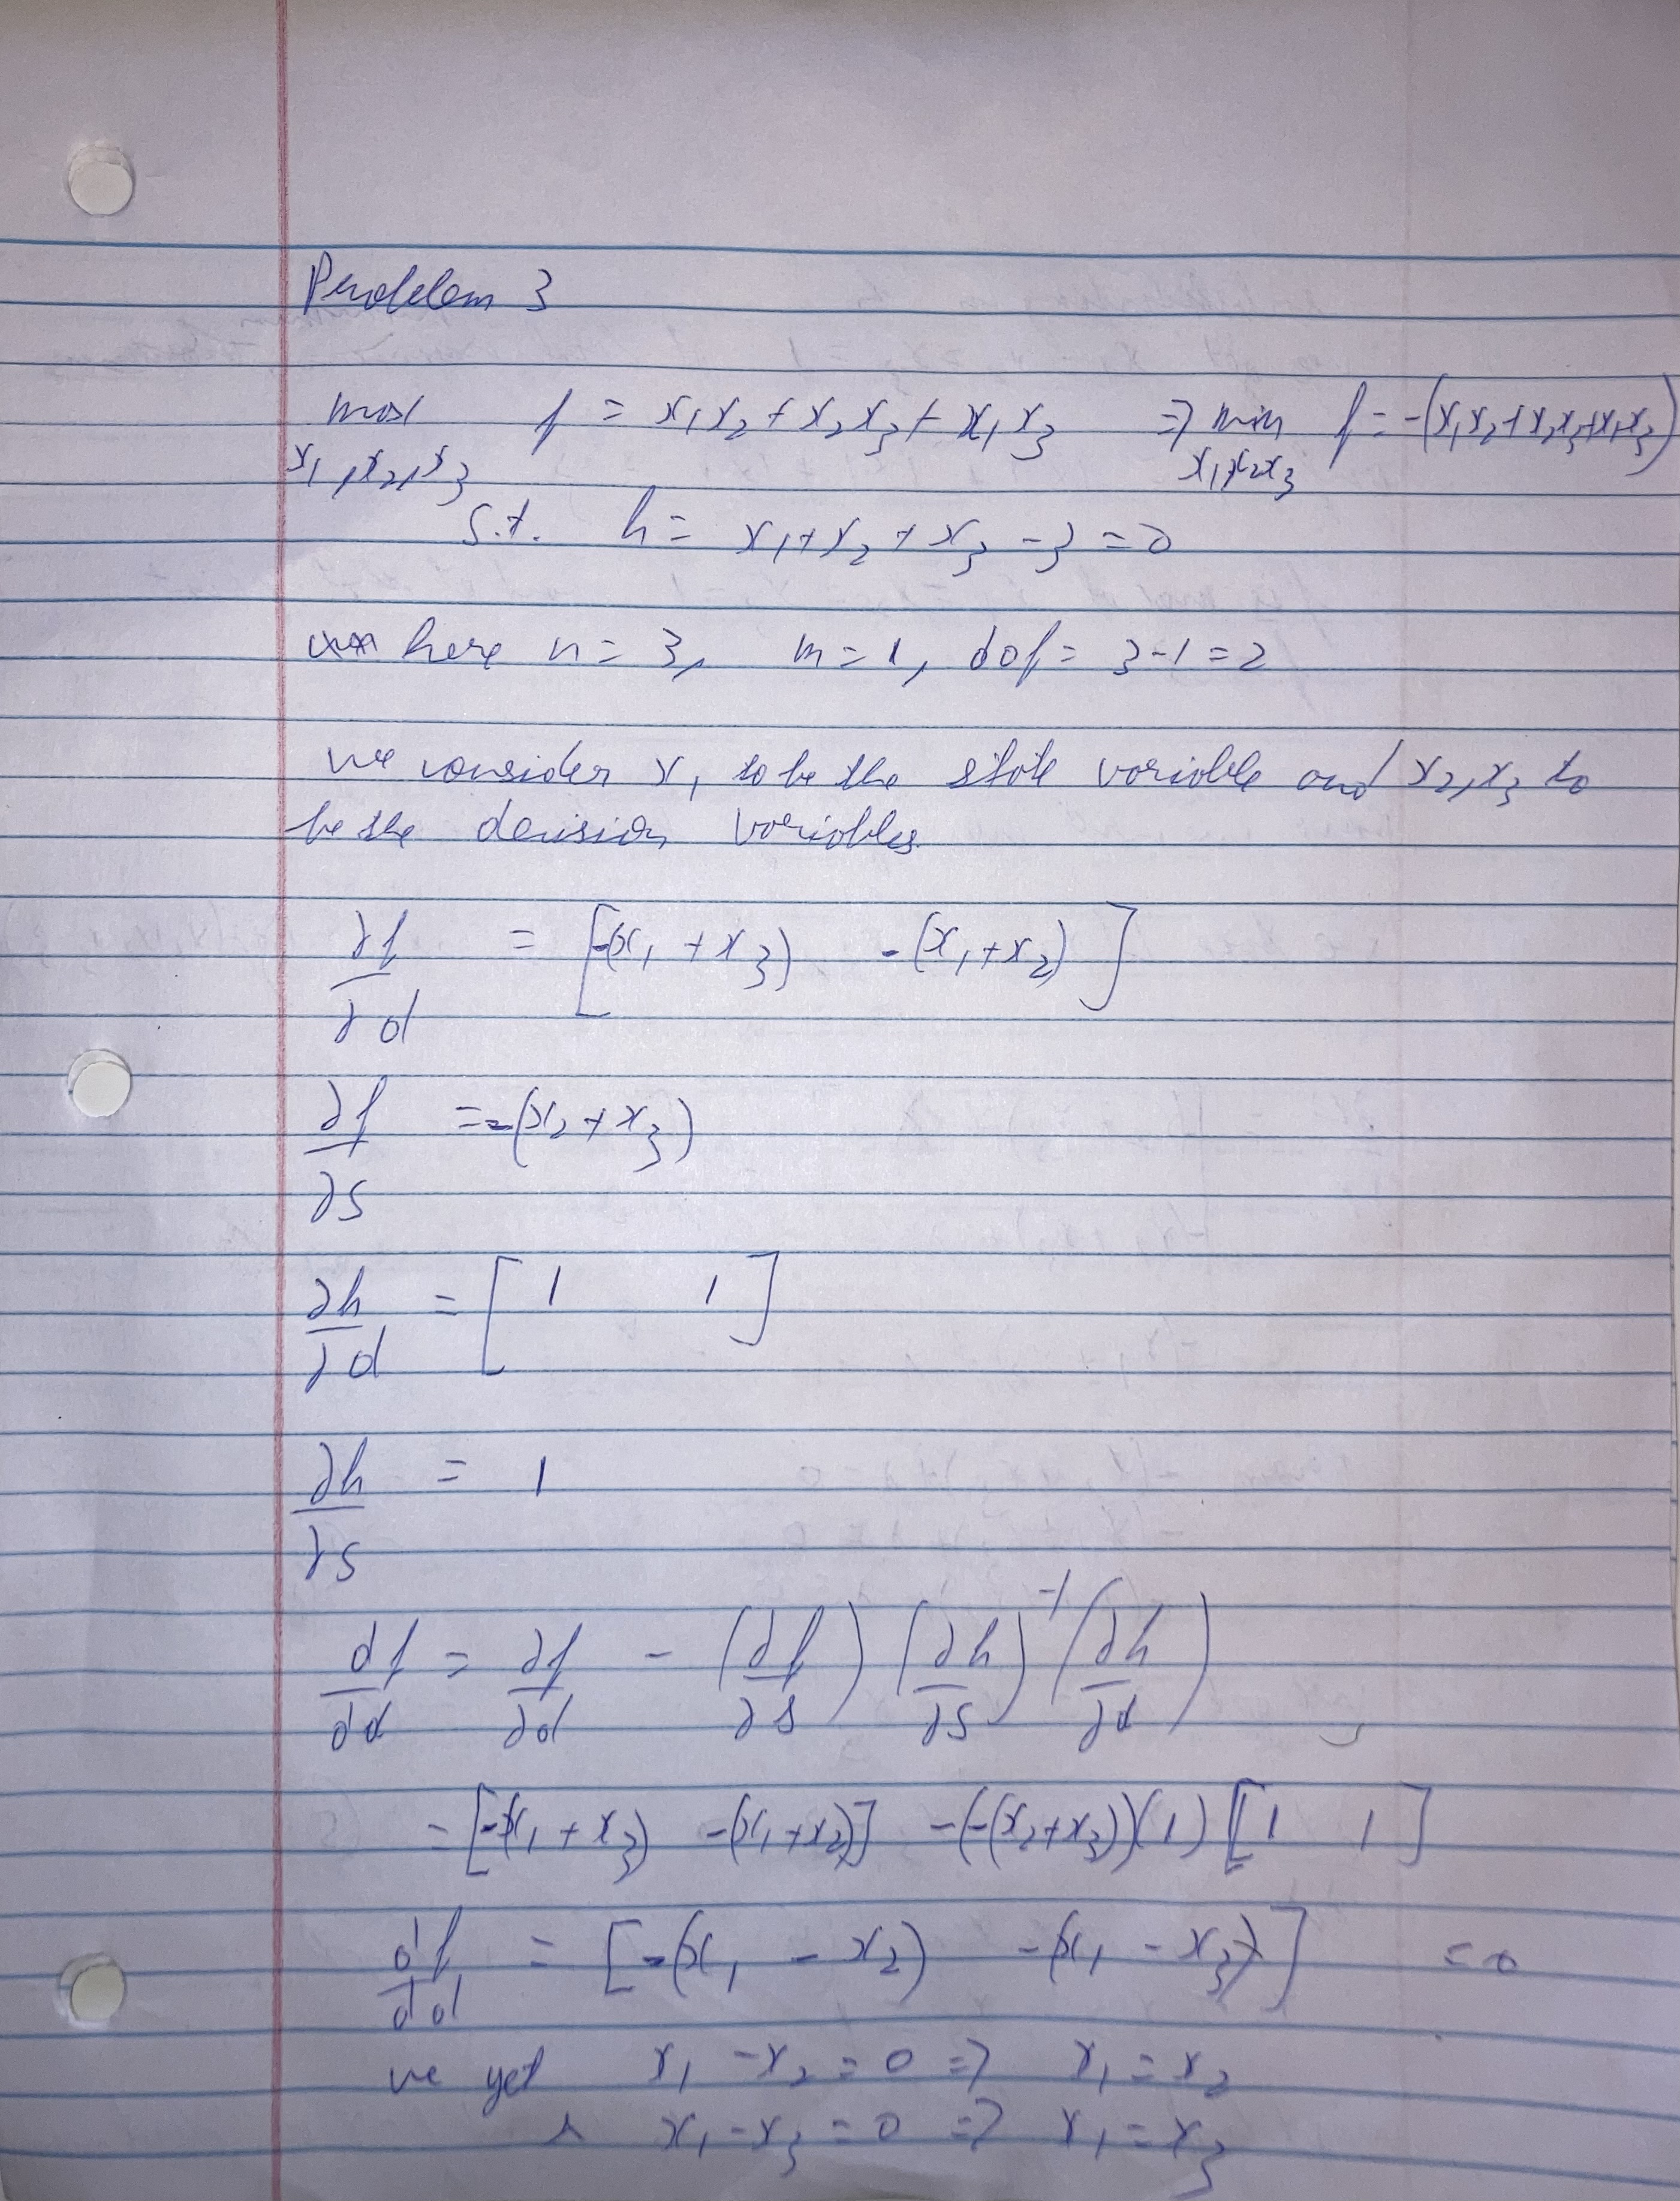 Problem 3
max f = x₁x₂ + x₂x₃ + x₁x₃ => min f = -(x₁x₂+x₂x₃+x₁x₃)
x₁,x₂,x₃ x₁x₂x₃
s.t. h = x₁+x₂+x₃-3=0
here n=3, m=1, dof= 3-1=2
we consider x₁ to be the state variable and x₂,x₃ to
be the decision variables
∂f/∂d = [-(x₁+x₃) -(x₁+x₂)]
∂f/∂s = -(x₂+x₃)
∂h/∂d = [1 1]
∂h/∂s = 1
df/dd = ∂f/∂d - (∂f/∂s)(∂h/∂s)⁻¹(∂h/∂d)
= [-(x₁+x₃) -(x₁+x₂)] -(-(x₂+x₃))(1)[1 1]
df/dd = [-(x₁-x₂) -(x₁-x₃)] =0
we get x₁-x₂=0 => x₁=x₂
& x₁-x₃=0 => x₁=x₃